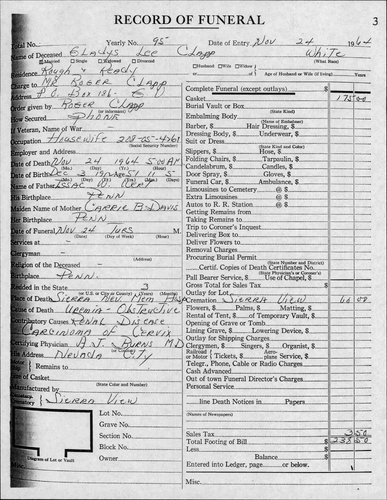 RECORD OF FUNERAL
3
Total No. Yearly No. 95 Date of Entry Nov 24 1964
Name of Deceased Gladys Lee Clapp White
Married Single Widowed Divorced Husband Wife Widow (What Race)
Residence Rough & Ready or of Age of Husband or Wife (if living) Years
Charge to Mr Roger Clapp
P.O. Box 186 - G V
Order given by Roger Clapp
How Secured Phone
If Veteran, Name of War
Occupation Housewife 208-05-4761
(Social Security Number)
Employer and Address
Date of Death Nov 24 1964 5:00 AM
Date of Birth Dec 3 1912 51 11 5
Name of Father Issac W. Wert
His Birthplace Penn
Maiden Name of Mother Carrie B. Davis
Her Birthplace Penn
Date of Funeral Nov 24 Tues M.
(Date) (Day of Week) (Hour)
Services at
Clergyman
(Address)
Religion of the Deceased
Birthplace Penn
Resided in the State 3
(U.S. or City or County) (Years)
Place of Death Sierra Nev. Mem Hosp
Cause of Death Uremia - Obstructive
Contributory Causes Renal Disease
Carcinoma of Cervix
Certifying Physician A J Burns MD
His Address Nevada City
Remains to
Size of Casket
(State Color and Number)
Manufactured by
Sierra View
Lot No.
Grave No.
Section No.
Block No.
Owner
Diagram of Lot or Vault
Complete Funeral (except outlays) $
Casket 175 00
Burial Vault or Box
(State Kind)
Embalming Body
(Name of Embalmer)
Barber, $ Hair Dressing, $
Dressing Body, $ Underwear, $
Suit or Dress
(State Kind and Color)
Slippers, $ Hose, $
Folding Chairs, $ Tarpaulin, $
Candelabrum, $ Candles, $
Door Spray, $ Gloves, $
Funeral Car, $ Ambulance, $
Limousines to Cemetery @ $
Extra Limousines @ $
Autos to R. R. Station @ $
Getting Remains from
Taking Remains to
Trip to Coroner's Inquest
Delivering Box to
Deliver Flowers to
Removal Charges
Procuring Burial Permit
(State Number and District)
Certif. Copies of Death Certificates No.
(State Physician's or Coroner's)
Pall Bearer Service, $ Use of Chapel, $
Gross Total for Sales Tax $
Outlay for Lot
Cremation Sierra View 60 00
Flowers, $ Palms, $ Matting, $
Rental of Tent, $ of Temporary Vault, $
Opening of Grave or Tomb
Lining Grave, $ Lowering Device, $
Outlay for Shipping Charges
Clergyman, $ Singers, $ Organist, $
Railroad or Motor Tickets, $ Aeroplane Service, $
Telegr., Phone, Cable or Radio Charges
Cash Advanced
Out of town Funeral Director's Charges
Personal Service
line Death Notices in Papers
(Names of Newspapers)
Sales Tax 3 50
Total Footing of Bill $ 238 50
Less $
Balance $
Entered into Ledger, page or below.
Misc.